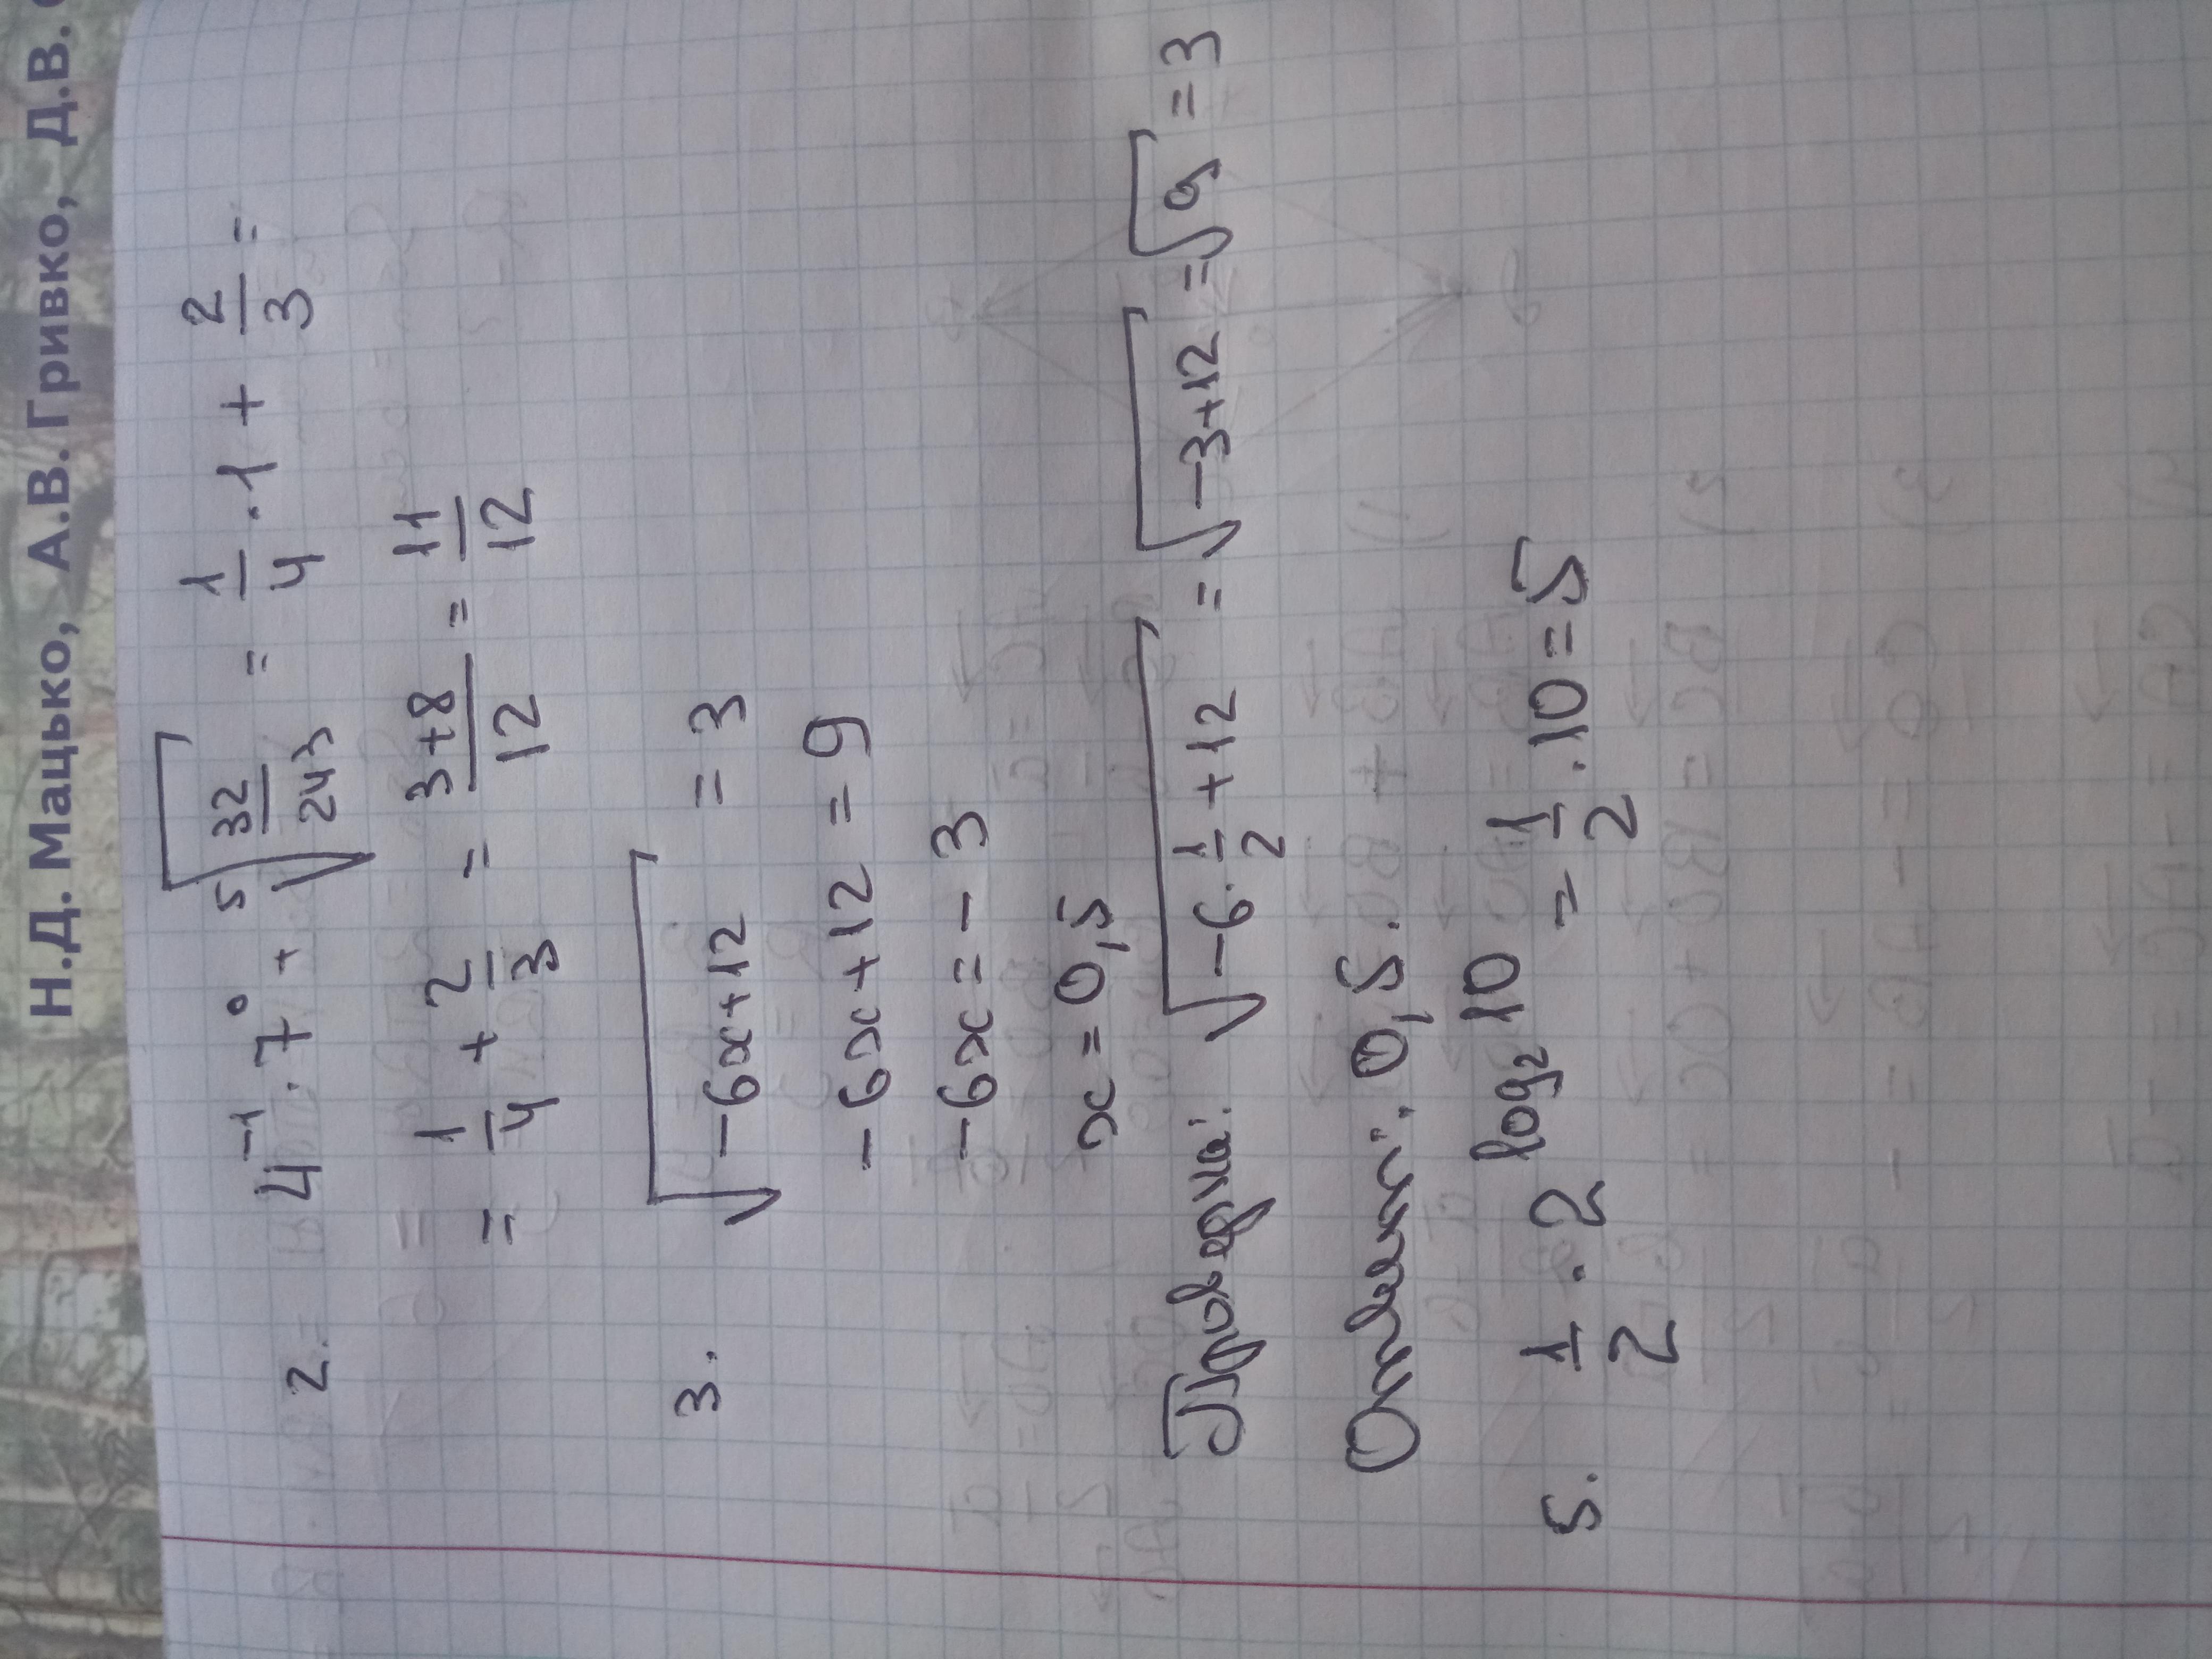 Н.Д. Мацько, А.В. Гривко, Д.В.
2. 4⁻¹ · 7⁰ + ⁵√(32/243) = 1/4 · 1 + 2/3 =
= 1/4 + 2/3 = (3+8)/12 = 11/12
3. √(-6x+12) = 3
-6x+12 = 9
-6x = -3
x = 0,5
Проверка: √(-6·1/2+12) = √(-3+12) = √9 = 3
Ответ: 0,5.
5. 1/2 · 2^(log₂ 10) = 1/2 · 10 = 5